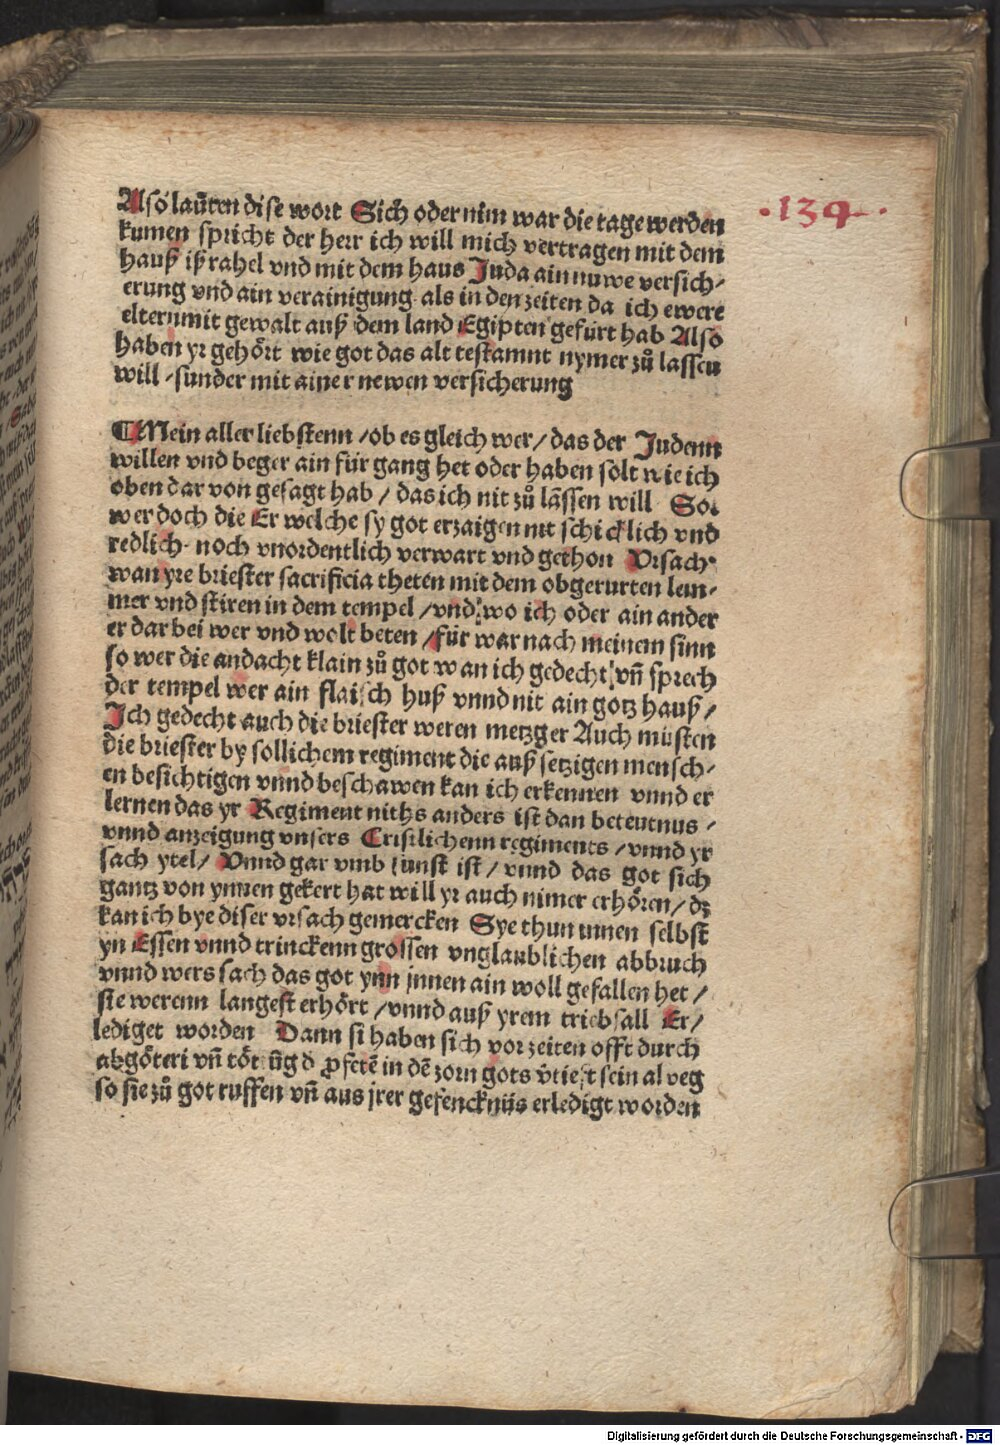 Also lautten dise wort Sich oder nim war die tage werden
·134·
kumen spricht der herr ich will mich vertragen mit dem
hauß ißrahel vnd mit dem haus Juda ain nuwe versich⸗
erung vnd ain verainigung als in den zeiten da ich ewere
elternmit gewalt auß dem land Egipten gefürt hab Also
haben yr gehört wie got das alt testamnt nymer zů lassen
will / sunder mit ainer newen versicherung
¶ Mein aller liebstenn / ob es gleich wer / das der Judenn
willen vnd beger ain für gang het oder haben solt wie ich
oben dar von gesagt hab / das ich nit zů lassen will So
wer doch die Er welche sy got erzaigen nit schicklich vnd
redlich noch vnordentlich verwart vnd gethon Vrsach
wan yre briester sacrificia theten mit dem obgerurten lem⸗
mer vnd stiren in dem tempel / vnd wo ich oder ain ander
er dar bei wer vnd wolt beten / für war nach meinem sinn
so wer die andacht klain zů got wan ich gedecht vñ sprech
der tempel wer ain flaisch huß vnnd nit ain gotz hauß /
Ich gedecht auch die briester weren metzger Auch müsten
die briester by sollichem regiment die auß setzigen mensch⸗
en besichtigen vnnd beschawen kan ich erkennen vnnd er
lernen das yr Regiment niths anders ist dan beteutnus /
vnnd anzeigung vnsers Cristlichenn regiments / vnnd yr
sach ytel / Vnnd gar vmb sunst ist / vnnd das got sich
gantz von ynnen gekert hat will yr auch nimer erhören / dz
kan ich bye diser vrsach gemercken Sye thun innen selbst
yn Essen vnnd trinckenn grossen vnglaublichen abbruch
vnnd wers sach das got ynn jnnen ain woll gefallen het /
sie werenn langest erhört / vnnd auß yrem triebsall Er/
lediget worden Dann si haben sich vor zeiten offt durch
abgöteri vñ töt ũg d ꝓfetẽ in dẽ zorn gots v̓tiest sein al veg
so sie zů got ruffen vñ aus jrer gefencknüs erledigt worden
Digitalisierung gefördert durch die Deutsche Forschungsgemeinschaft - DFG